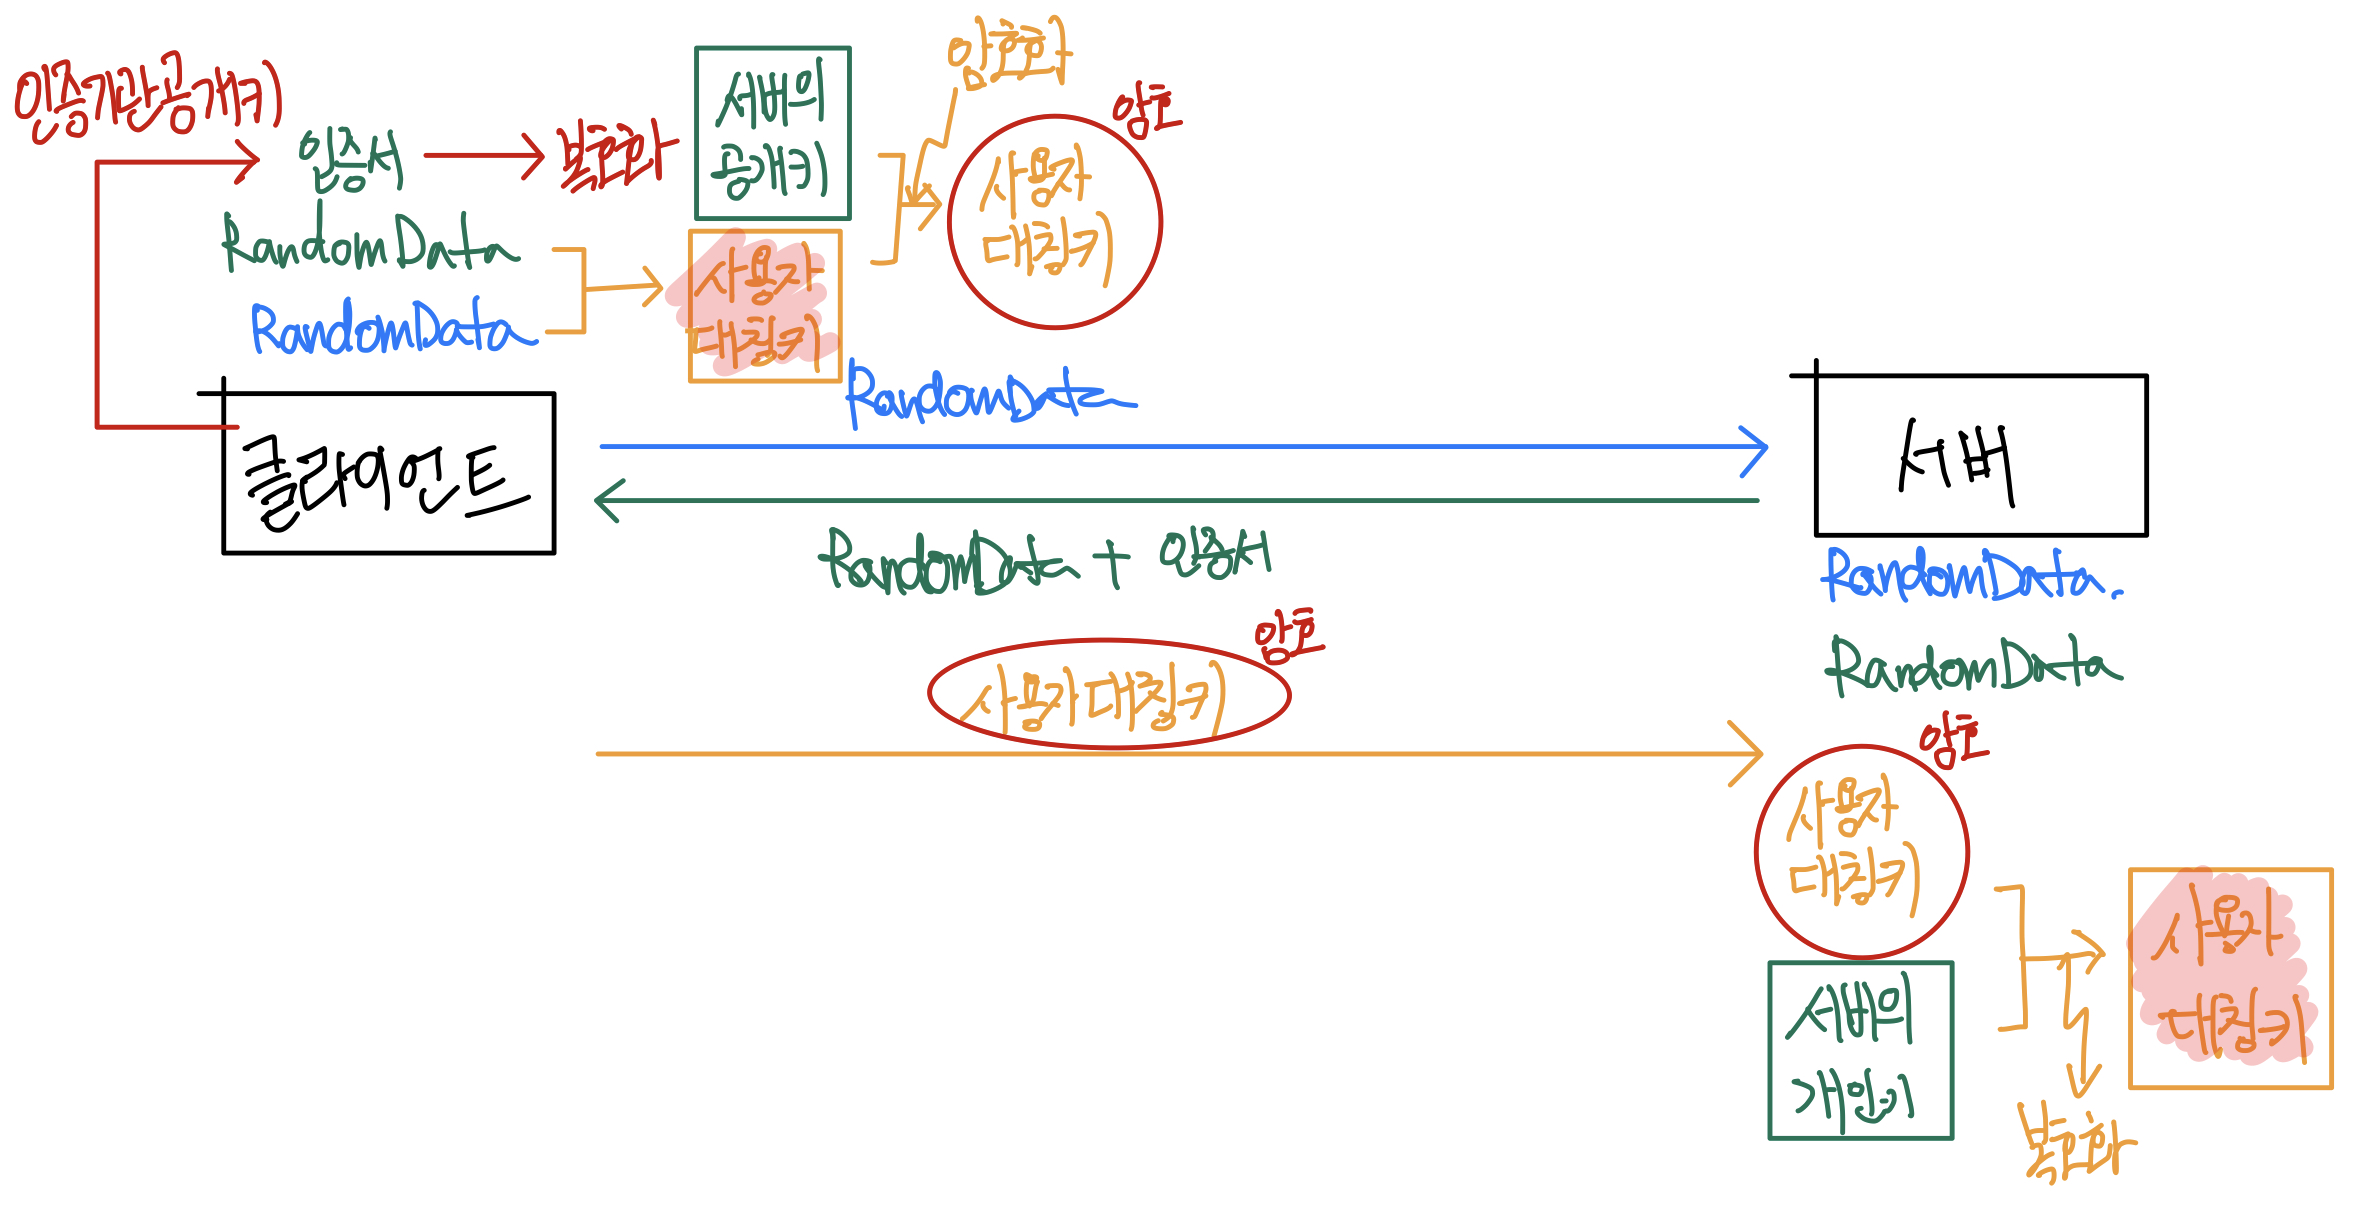 인증기관공개키
인증서
복호화
서버의
공개키
암호화
암호
사용자
대칭키
RandomData
RandomData
사용자
대칭키
RandomData
클라이언트
서버
RandomData + 인증서
RandomData
RandomData
사용자 대칭키
암호
암호
사용자
대칭키
서버의
개인키
사용자
대칭키
복호화